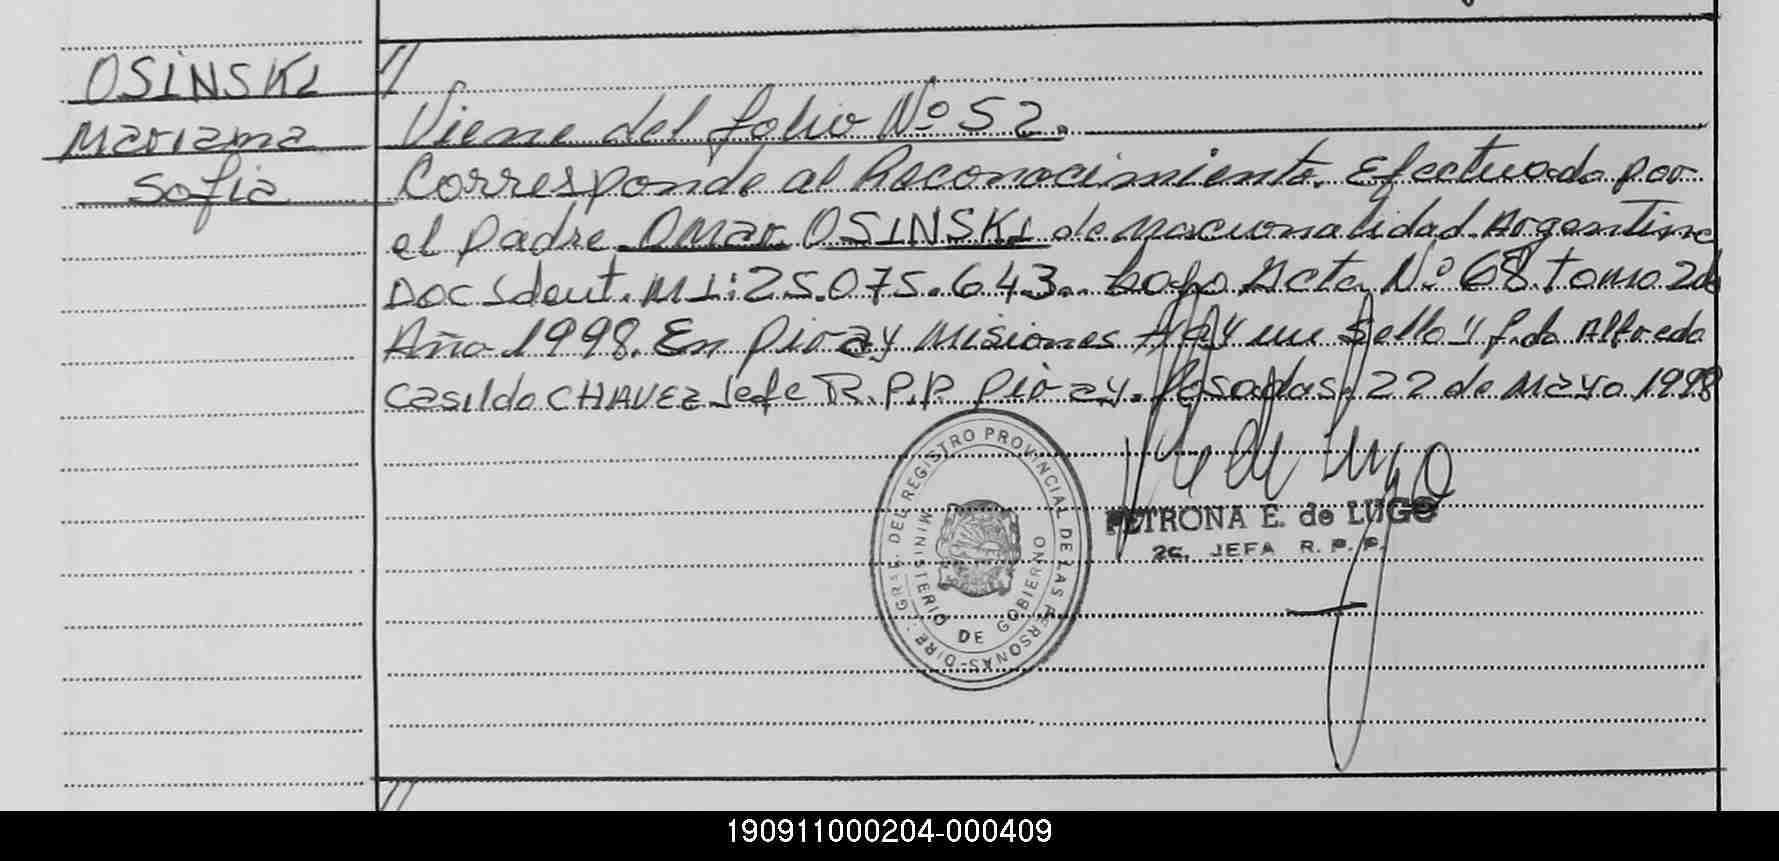 OSINSKI
Mariana
Sofia
//
Viene del folio Nº 52.
Corresponde al Reconocimiento. Efectuado por
el padre Omar OSINSKI de nacionalidad Argentina
Doc Ident. M I: 25.075.643.. bajo Acta Nº 68. tomo 2do
Año 1998. En Piray Misiones Hay un Sello y f.do Alfredo
Casildo CHAVEZ Jefe R.P.P. Piray. Posadas. 22 de Mayo 1998
DIRE. GRAL. DEL REGISTRO PROVINCIAL DE LAS PERSONAS
MINISTERIO DE GOBIERNO
PETRONA E. de LUGO
JEFA R. P. P.
//
190911000204-000409